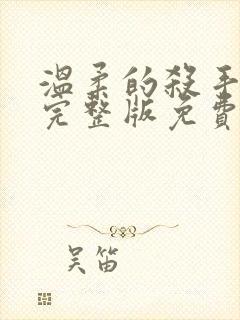 温柔的殺手
完整版免費
吴笛